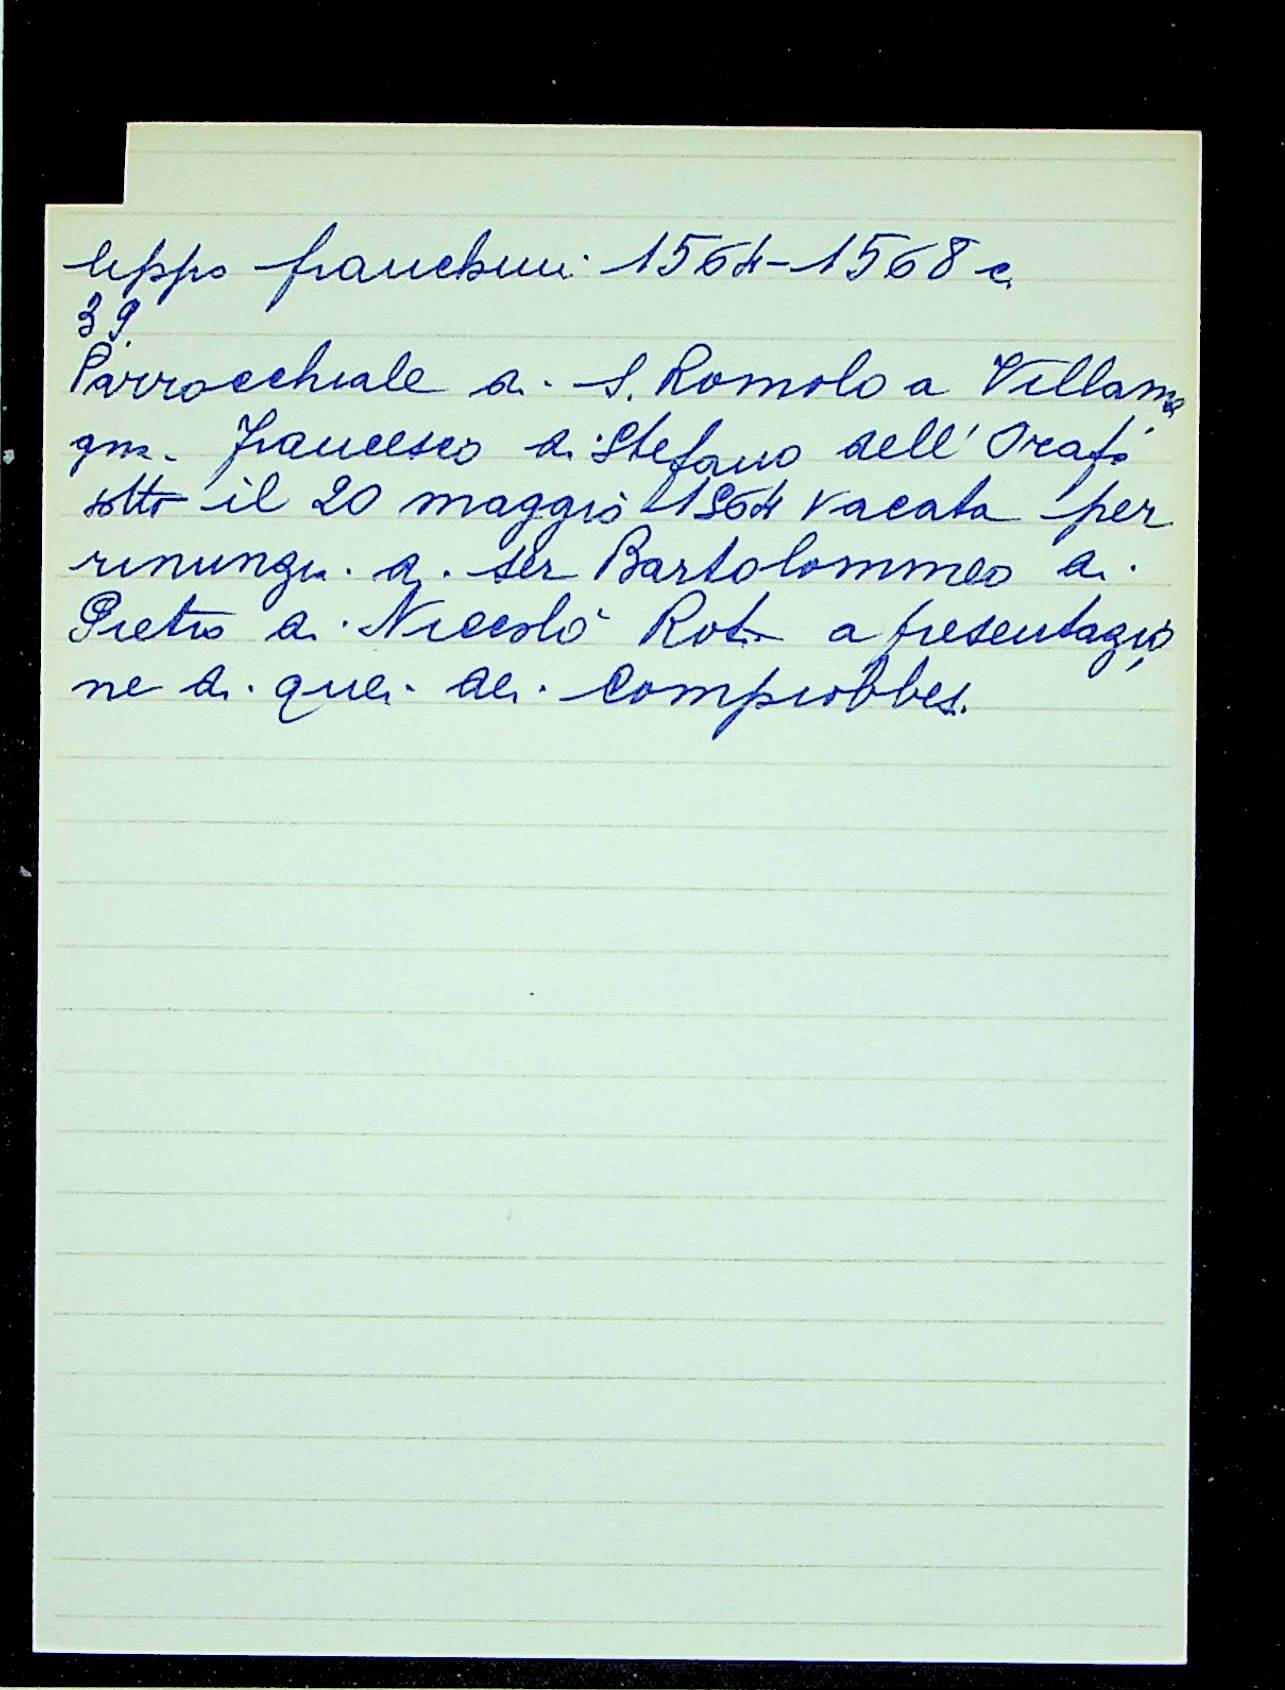 lippo franchini 1564-1568 c.
39
Parrocchiale di S. Romolo a Villama
gna. Francesco di Stefano dell'Orafo
sotto il 20 maggio 1564 vacata per
rinunzia di ser Bartolommeo di
Pietro di Niccolò Roti a presentazio
ne di quei dei Compiobbesi.